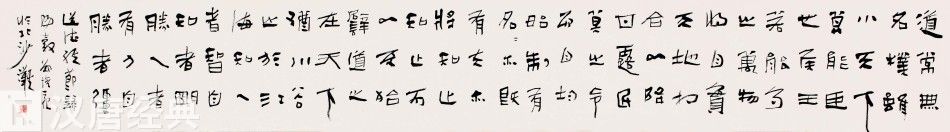 道常無
名樸雖
小天下
莫能臣
也王侯
若能守
之萬物
將自賓
天地相
合以降
甘露民
莫之令
而自均
始制有
名〻亦既
有夫亦
將知止
知止可
以不殆
譬道之
在天下
猶川谷
之於江
海知人
者智自
知者明
勝人者
有力自
勝者強
道德經節錄
於北沙灘
汉唐经典